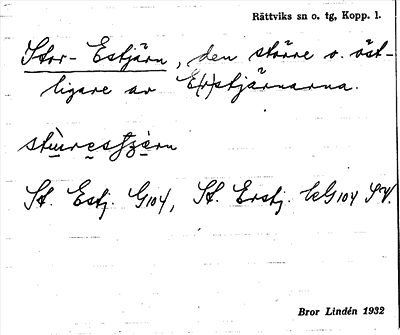 Rättviks sn o. tg, Kopp. l.
Stor-Estjärn, den större o. öst-
ligare av E(r)stjärnarna.
stùresʃzèrn
St. Estj. G104, St. Erstj. G104 SV.
Bror Lindén 1932